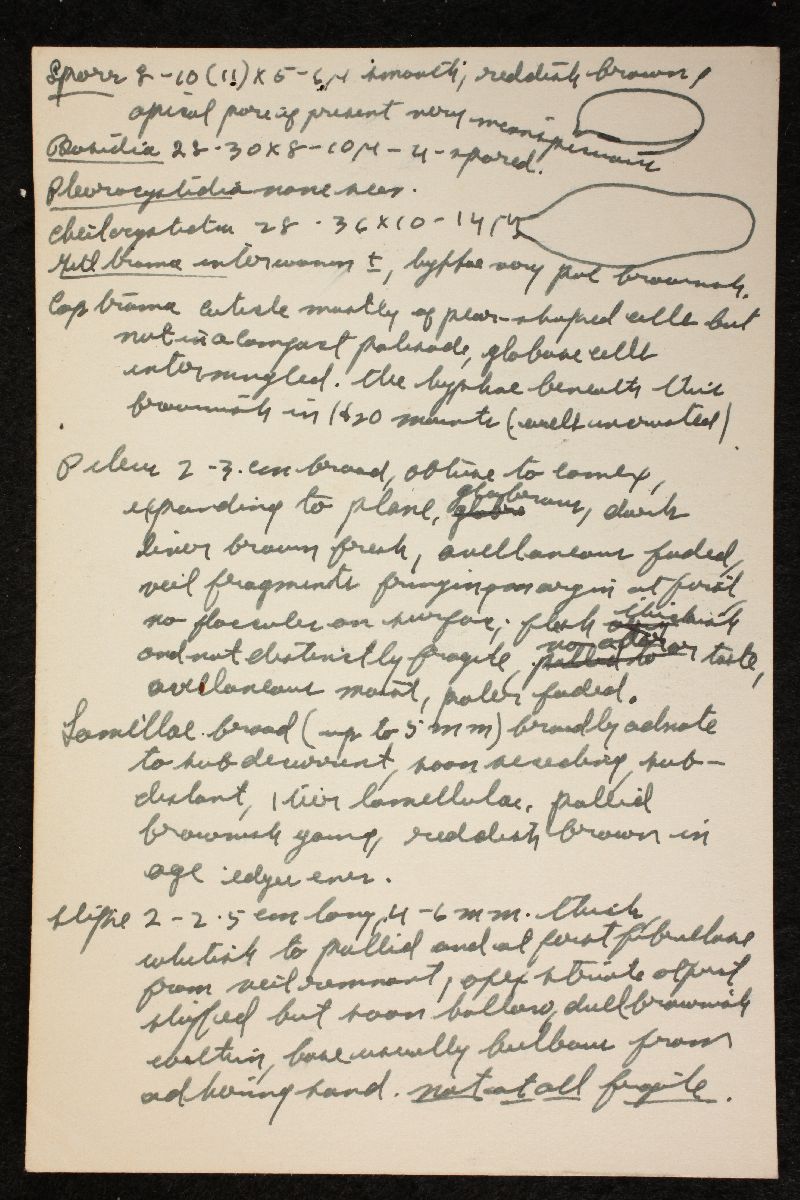 Spores 8-10(11)X5-6μ smooth, reddish brown,
apical pore if present very
Basidia 28-30X8-10μ - 4-spored.
Pleurocystidia none seen.
Cheilocystidia 28-36X10-14μ
Gill trama interwoven ±, hyphae very pale brownish.
Cap trama cuticle mostly of pear-shaped cells but
not in a compact palisade, globose cells
intermingled. the hyphae beneath this
brownish in H20 mounts (well incrusted)
Pileus 2-3 cm broad, obtuse to convex,
expanding to plane, glabrous, dark
liver brown fresh, avellaneous faded,
veil fragments fringing margin at first,
no floccules on surface; flesh thickish
and not distinctly fragile, no odor or taste,
avellaneous moist, paler faded.
Lamellae broad (up to 5 mm) broadly adnate
to subdecurrent, soon seceding, sub-
distant, 1 tier lamellulae, pallid
brownish young, reddish brown in
age edges even.
stipe 2-2.5 cm long, 4-6 mm. thick,
whitish to pallid and at first fibrillose
from veil remnant, apex striate at first
stuffed but soon hollow, dull brownish
within, base usually bulbous from
adhering sand. not at all fragile.